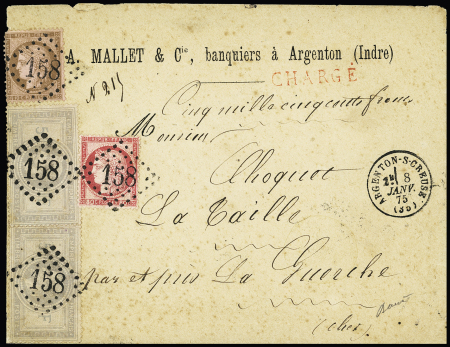 A. MALLET & Cie, banquiers à Argenton (Indre)
CHARGÉ
N 215
Cinq mille cinq cents francs
Monsieur
Choquet
La Taille
par et près La Guerche
(Cher)
ARGENTON-S-CREUSE
2E 8
JANV.
75
(35)
158
158
158
158